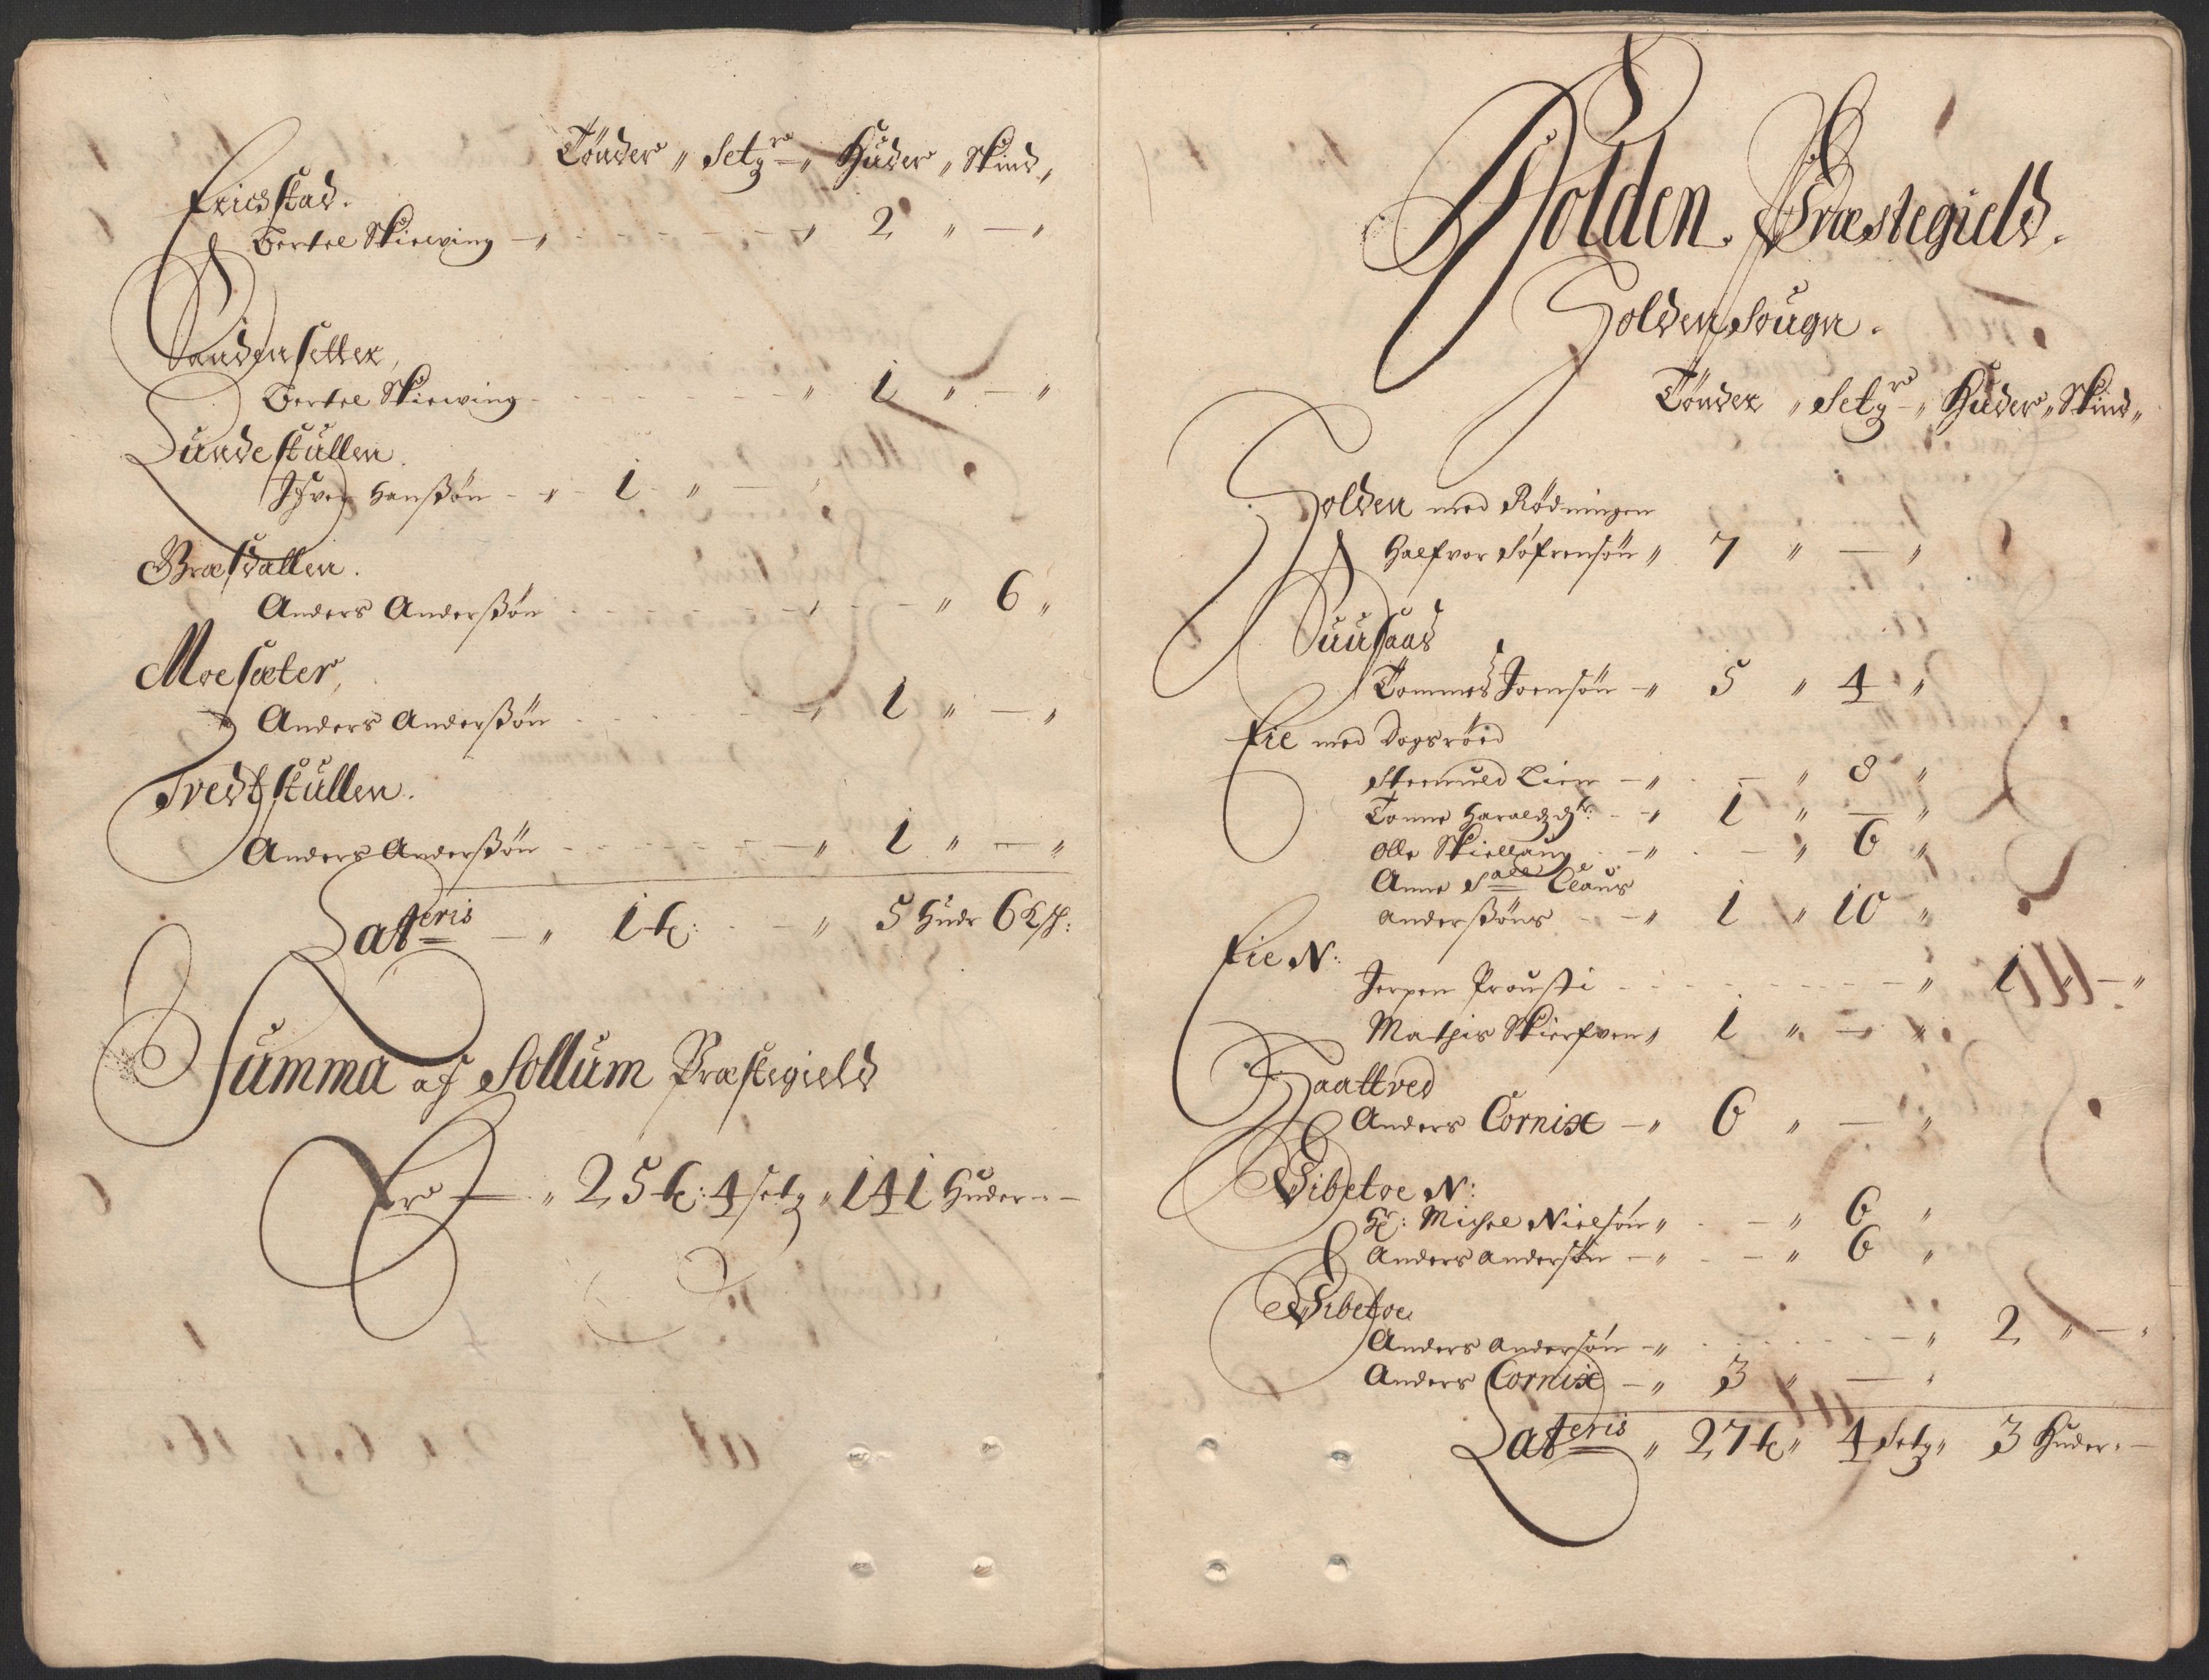 Tönder „ Setgr „ Huder „ Skind„
Ericsstad.
Bertel Skieving — „ - - - „ 2 „ — „
Sandensetter,
Bertel Skieving - - - „ 1 „ — „
Lundestullen.
Ifver Hanßön - „ - 1 „ —
Bræsdallen.
Anders Anderßön - - - „ 6 „
Moesæter,
Anders Anderßön - - - „ 1 „ — „
Tvedtstullen.
Anders Anderßön - - - „ 1 „ — „
Lateris — „ 1 t: - „ 5 Hudr 6 Ksk:
Summa af Sollum Præstegield
Er — „ 25 t: 4 setg „ 141 Huder - -
Holden Præstegield.
Holden Sougn.
Tönder „ Setgr „ Huder „ Skind„
Holden med Rødningen
Halfvor Söfrensön „ 7 „ — „
Suusaas
Tommes Joensön — „ 5 „ 4 „
Eie med Dogsröed
Steenuld Lien — „ - — „ 8 „
Tonne Haraldzdtr: - „ 1 „ — „
Olle Skiellaug — „ - — „ 6 „
Anne Sall Claus
Anderßöns - - „ 1 „ 10 „
Eie N:
Jerpen Prousti - - - „ 1 „ — „
Mathis Skierfven „ 1 „ — „
Haattved
Anders Cornix — „ 6 „ — „
Vibetoe N:
Hr: Michel Nielsön „ - — „ 6 „
Anders Andersön — „ - — „ 6 „
Vibetoe
Anders Andersön — „ - - - „ 2 „ — „
Anders Cornix — „ 3 „ — „
Lateris „ 27 t „ 4 Setg „ 3 Huder - —